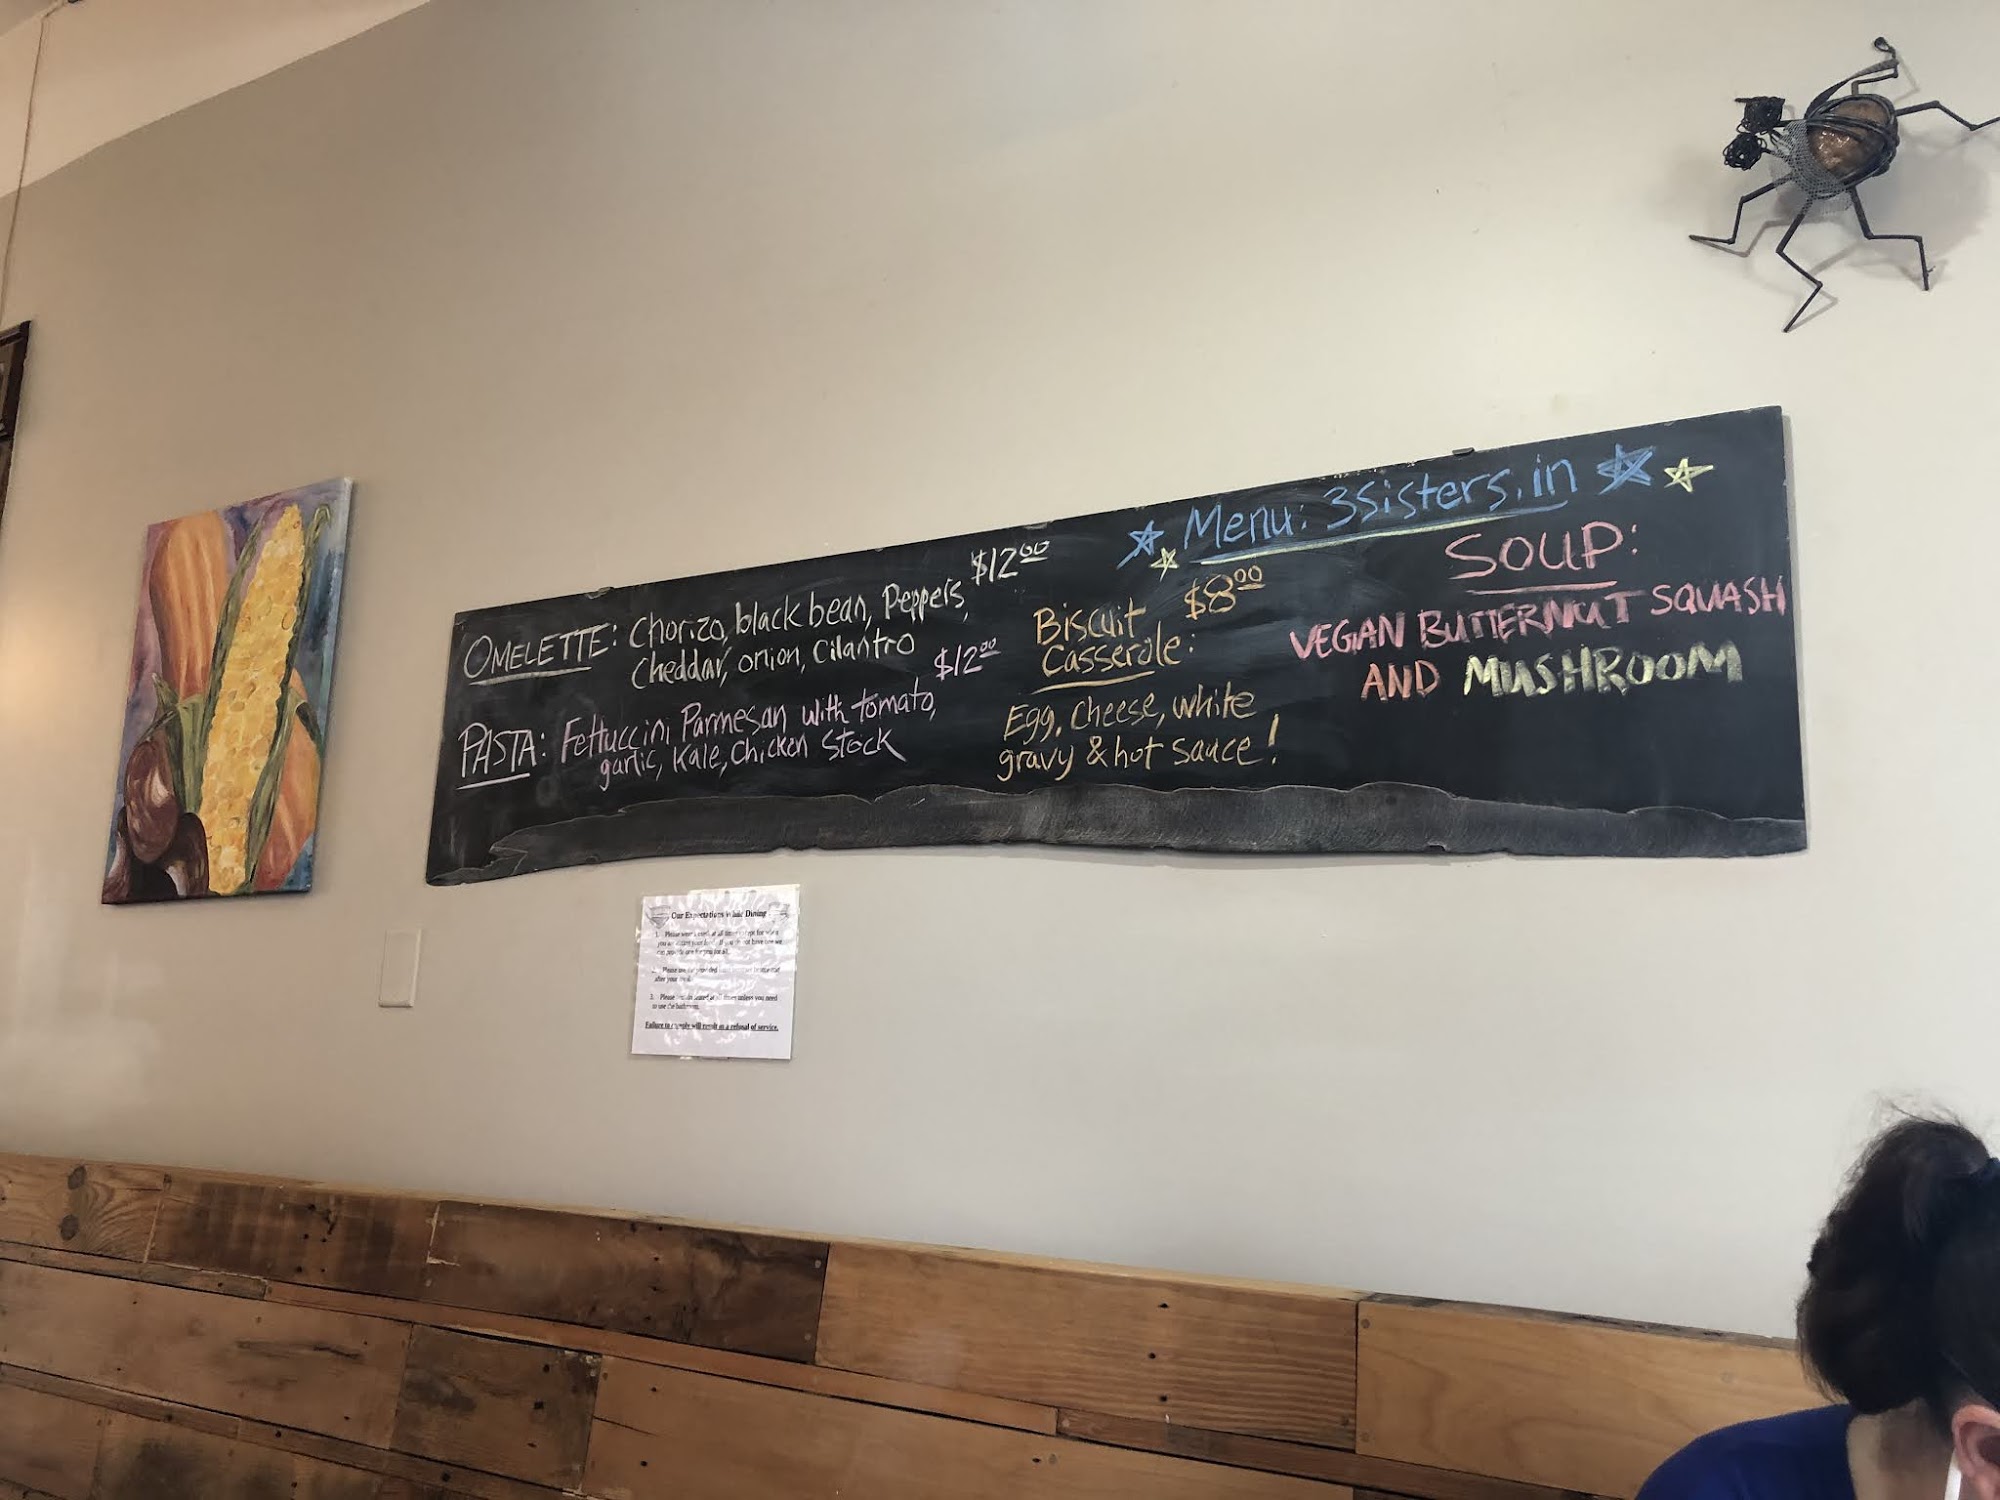 ☆☆ Menu: 3sisters.in ☆☆
OMELETTE: Chorizo, black bean, Peppers, $12.00
Cheddar, onion, Cilantro
PASTA: Fettuccini, Parmesan with tomato, $12.00
garlic, Kale, Chicken Stock
Biscuit $8.00
Casserole:
Egg, Cheese, white
gravy & hot sauce!
SOUP:
VEGAN BUTTERNUT SQUASH
AND MUSHROOM
Our Expectations While Dining
1. Please wear a mask at all times except for when
you are eating your food. If you do not have one we
can provide one for you
2. Please use the provided
after your
3. Please remain seated at all times unless you need
to use the bathroom.
Failure to comply will result in a refusal of service.